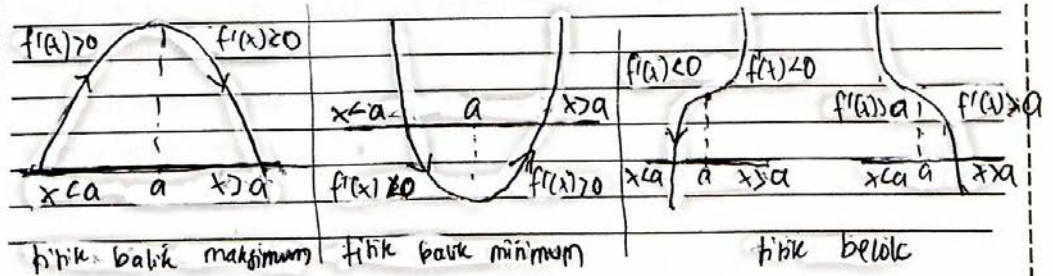 f'(x)>0 f'(x)<0
x<a a x>a
titik balik maksimum
x<a a x>a
f'(x)<0 f'(x)>0
titik balik minimum
f'(x)<0 f'(x)<0
x<a a x>a
f'(x)>a f'(x)>a
x<a a x>a
titik belok